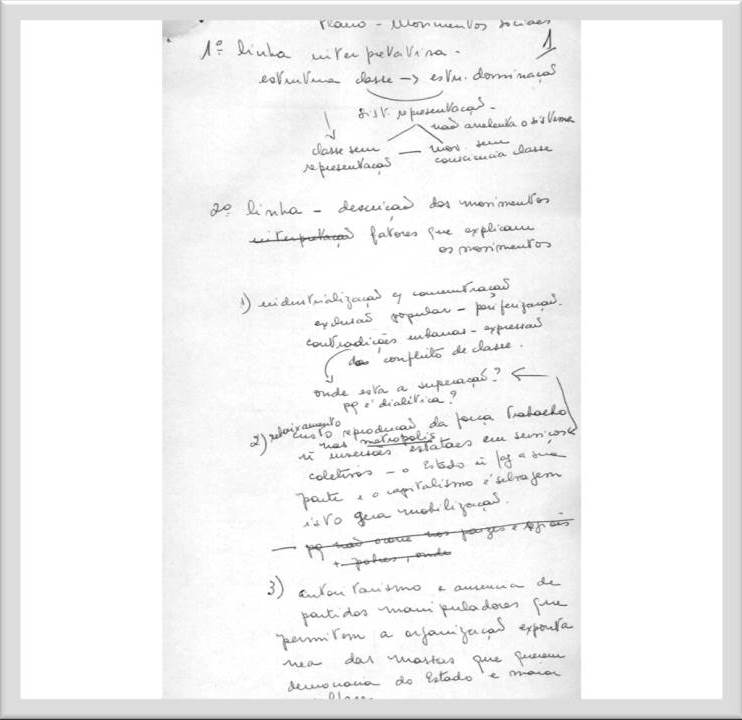 Plano - Movimentos sociais
1
1º linha interpretativa -
estrutura classe -> estr. dominação
sist. representação -
não arrebenta o sistema
classe sem — mov. sem
representação consciencia classe
2º linha - descrição dos movimentos
interpretação fatores que explicam
os movimentos
1) industrialização c/ concentração
exclusão popular - periferização.
contradições urbanas - expressão
do conflito de classe.
onde esta a superação?
pq é dialética?
2) rebaixamento custo reprodução da força trabalho
nas metropolis
ñ inversões estatais em serviços
coletivos - o Estado ñ faz a sua
parte e o capitalismo é selvagem
isto gera mobilização.
— pq não ocorre nos países e
+ pobres, onde
3) autoritarismo e ausencia de
partidos manipuladores que
permitem a organização esponta
nea das massas que querem
democracia do Estado e maior